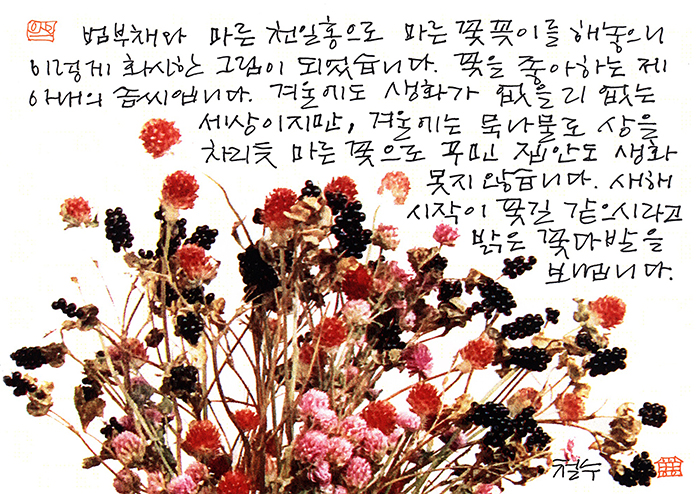 범부채와 마른 천일홍으로 마른 꽃꽂이를 해놓으니
이렇게 화사한 그림이 되었습니다. 꽃을 좋아하는 제
아내의 솜씨입니다. 겨울에도 생화가 없을 리 없는
세상이지만, 겨울에는 묵나물로 상을
차리듯 마른 꽃으로 꾸민 집안도 생화
못지 않습니다. 새해
시작이 꽃길 같으시라고
밝은 꽃다발을
보냅니다.
철수